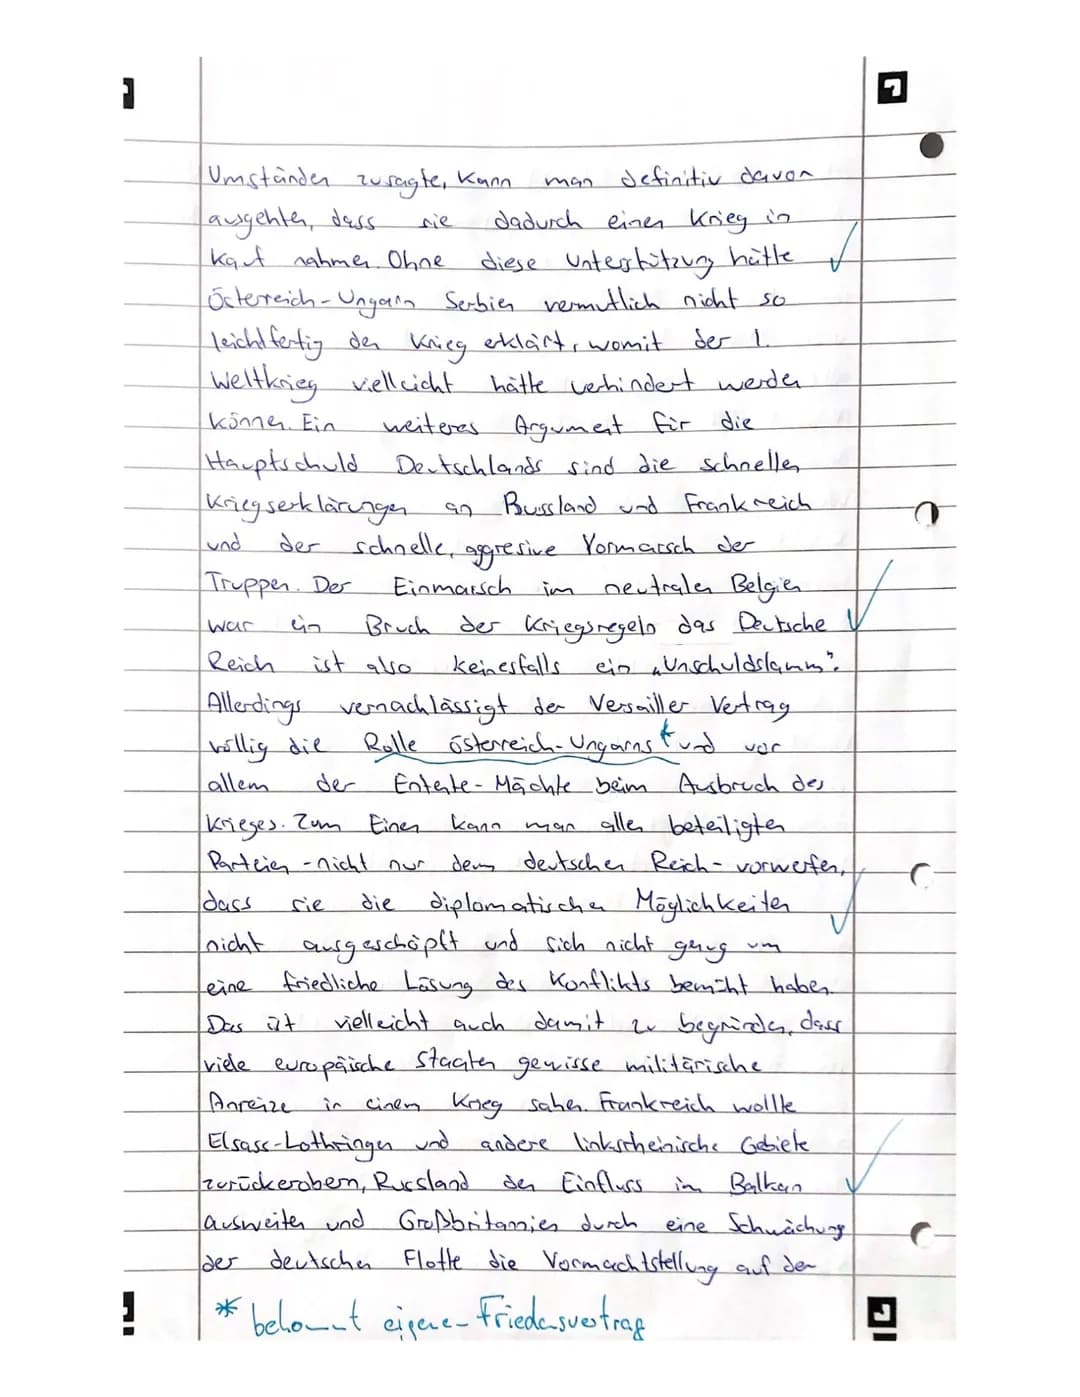 Umständen zusagte, kann man definitiv davon
ausgehen, dass sie dadurch einen Krieg in
Kauf nahmen. Ohne diese Unterstützung hätte
Österreich-Ungarn Serbien vermutlich nicht so
leichtfertig den Krieg erklärt, womit der 1.
Weltkrieg vielleicht hätte verhindert werden
können. Ein weiteres Argument für die
Hauptschuld Deutschlands sind die schnellen
Kriegserklärungen an Russland und Frankreich
und der schnelle, aggresive Vormarsch der
Truppen. Der Einmarsch im neutralen Belgien
war ein Bruch der Kriegsregeln das Deutsche
Reich ist also keinesfalls ein „Unschuldslamm".
Allerdings vernachlässigt der Versailler Vertrag
völlig die Rolle Österreich-Ungarns * und vor
allem der Entente-Mächte beim Ausbruch des
Krieges. Zum Einen kann man allen beteiligten
Parteien - nicht nur dem deutschen Reich - vorwerfen,
dass sie die diplomatischen Möglichkeiten
nicht ausgeschöpft und sich nicht genug um
eine friedliche Lösung des Konflikts bemüht haben.
Das ist vielleicht auch damit zu begründen, dass
viele europäische Staaten gewisse militärische
Anreize in einem Krieg sahen. Frankreich wollte
Elsass-Lothringen und andere linksrheinische Gebiete
zurückerobern, Russland den Einfluss im Balkan
ausweiten und Großbritannien durch eine Schwächung
der deutschen Flotte die Vormachtstellung auf den
* bekommt eigenen Friedensvertrag